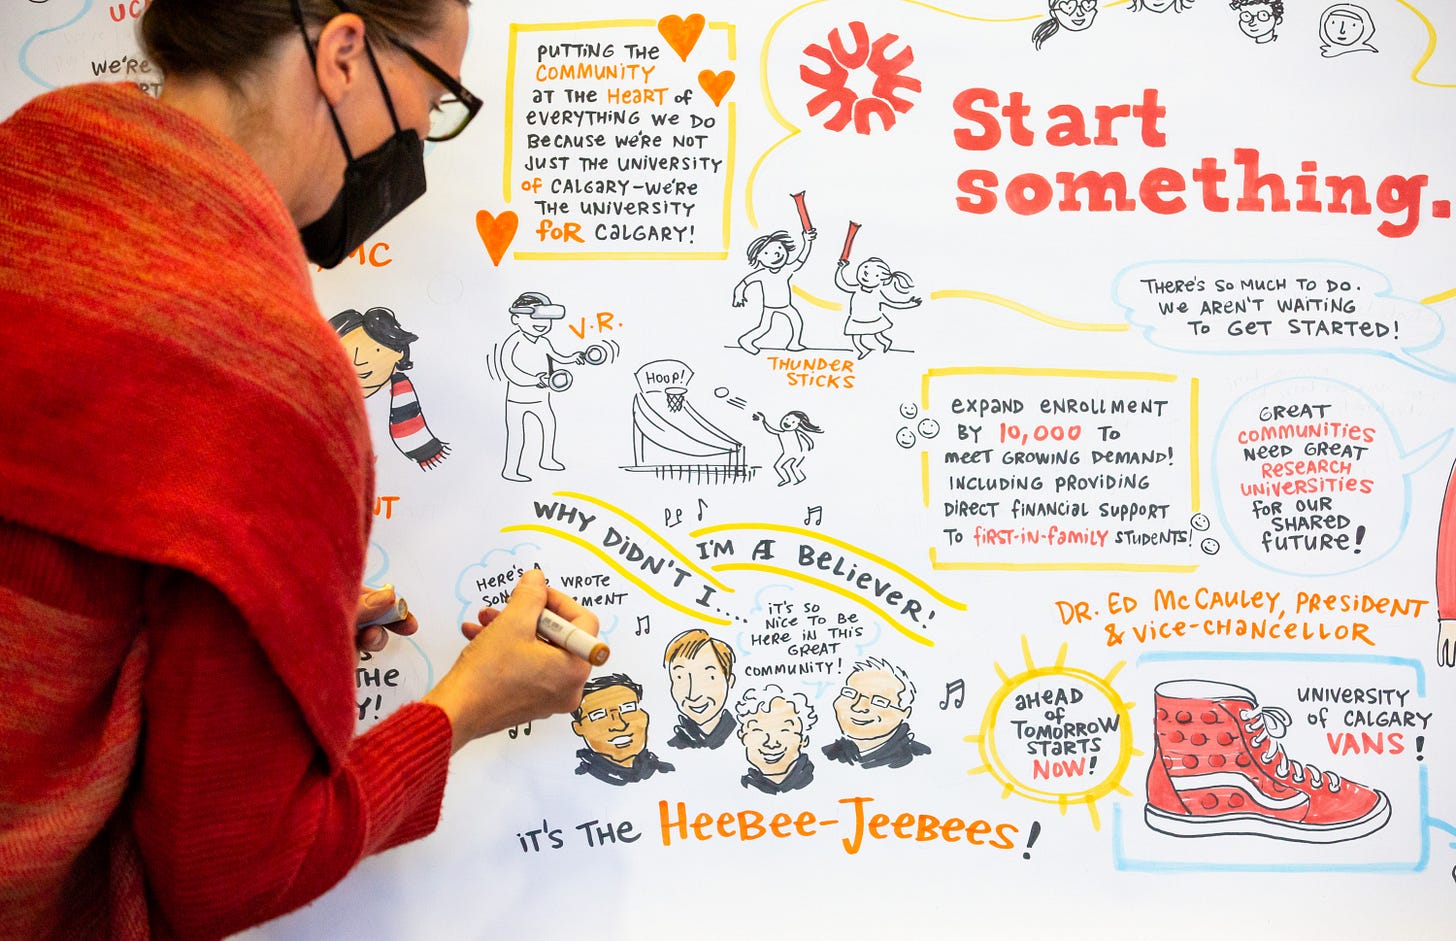 UC
WE'RE
PUTTING THE
COMMUNITY
AT THE HEART of
EVERYTHING WE DO
BECAUSE WE'RE NOT
JUST THE UNIVERSITY
of CALGARY–WE'RE
THE UNIVERSITY
foR CALGARY!
Start
something.
MC
V.R.
HOOP!
THUNDER
STICKS
THERE'S SO MUCH TO DO.
WE AREN'T WAITING
TO GET STARTED!
EXPAND ENROLLMENT
BY 10,000 TO
MEET GROWING DEMAND!
INCLUDING PROVIDING
DIRECT FINANCIAL SUPPORT
TO fIRST-IN-fAMILY STUDENTS!
GREAT
COMMUNITIES
NEED GREAT
RESEARCH
UNIVERSITIES
FOR OUR
SHARED
fUTURE!
WHY DIDN'T I...
I'M A BELIEVER!
HERE'S A
WROTE
IT'S SO
NICE TO BE
HERE IN THIS
GREAT
COMMUNITY!
THE
Y!
IT'S THE HEEBEE-JEEBEES!
DR. ED McCAULEY, PRESIDENT
& VICE-CHANCELLOR
AHEAD
of
TOMORROW
STARTS
NOW!
UNIVERSITY
of CALGARY
VANS!